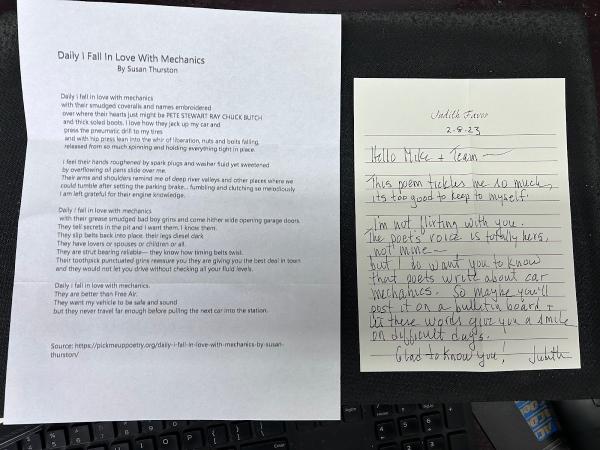 Daily I Fall In Love With Mechanics
By Susan Thurston
Daily I fall in love with mechanics
with their smudged coveralls and names embroidered
over where their hearts just might be PETE STEWART RAY CHUCK BUTCH
and thick soled boots. I love how they jack up my car and
press the pneumatic drill to my tires
and with hip press lean into the whir of liberation, nuts and bolts falling,
released from so much spinning and holding everything tight in place.
I feel their hands roughened by spark plugs and washer fluid yet sweetened
by overflowing oil pens slide over me.
Their arms and shoulders remind me of deep river valleys and other places where we
could tumble after setting the parking brake.. fumbling and clutching so melodiously
I am left grateful for their engine knowledge.
Daily I fall in love with mechanics
with their grease smudged bad boy grins and come hither wide opening garage doors.
They tell secrets in the pit and I want them. I know them.
They slip belts back into place, their legs diesel dark
They have lovers or spouses or children or all.
They are strut bearing reliable— they know how timing belts twist.
Their toothpick punctuated grins reassure you they are giving you the best deal in town
and they would not let you drive without checking all your fluid levels.
Daily I fall in love with mechanics.
They are better than Free Air.
They want my vehicle to be safe and sound
but they never travel far enough before pulling the next car into the station.
Source: https://pickmeuppoetry.org/daily-i-fall-in-love-with-mechanics-by-susan-
thurston/
Judith Favor
2-8-23
Hello Mike + Team —
This poem tickles me so much,
its too good to keep to myself.
I'm not flirting with you.
The poet's voice is totally hers,
not mine —
but I do want you to know
that poets write about car
mechanics. So maybe you'll
post it on a bulletin board +
let these words give you a smile
on difficult days.
Glad to know you! Judith